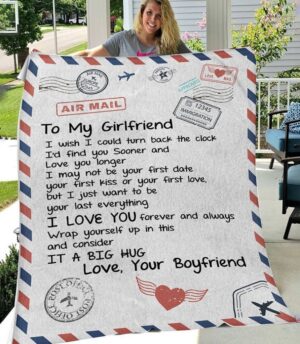 AIR MAIL
To My Girlfriend
I wish I could turn back the clock
I'd find you Sooner and
Love you longer
I may not be your first date
your first kiss or your first love,
but I just want to be
your last everything
I LOVE YOU forever and always
Wrap yourself up in this
and consider
IT A BIG HUG
Love, Your Boyfriend